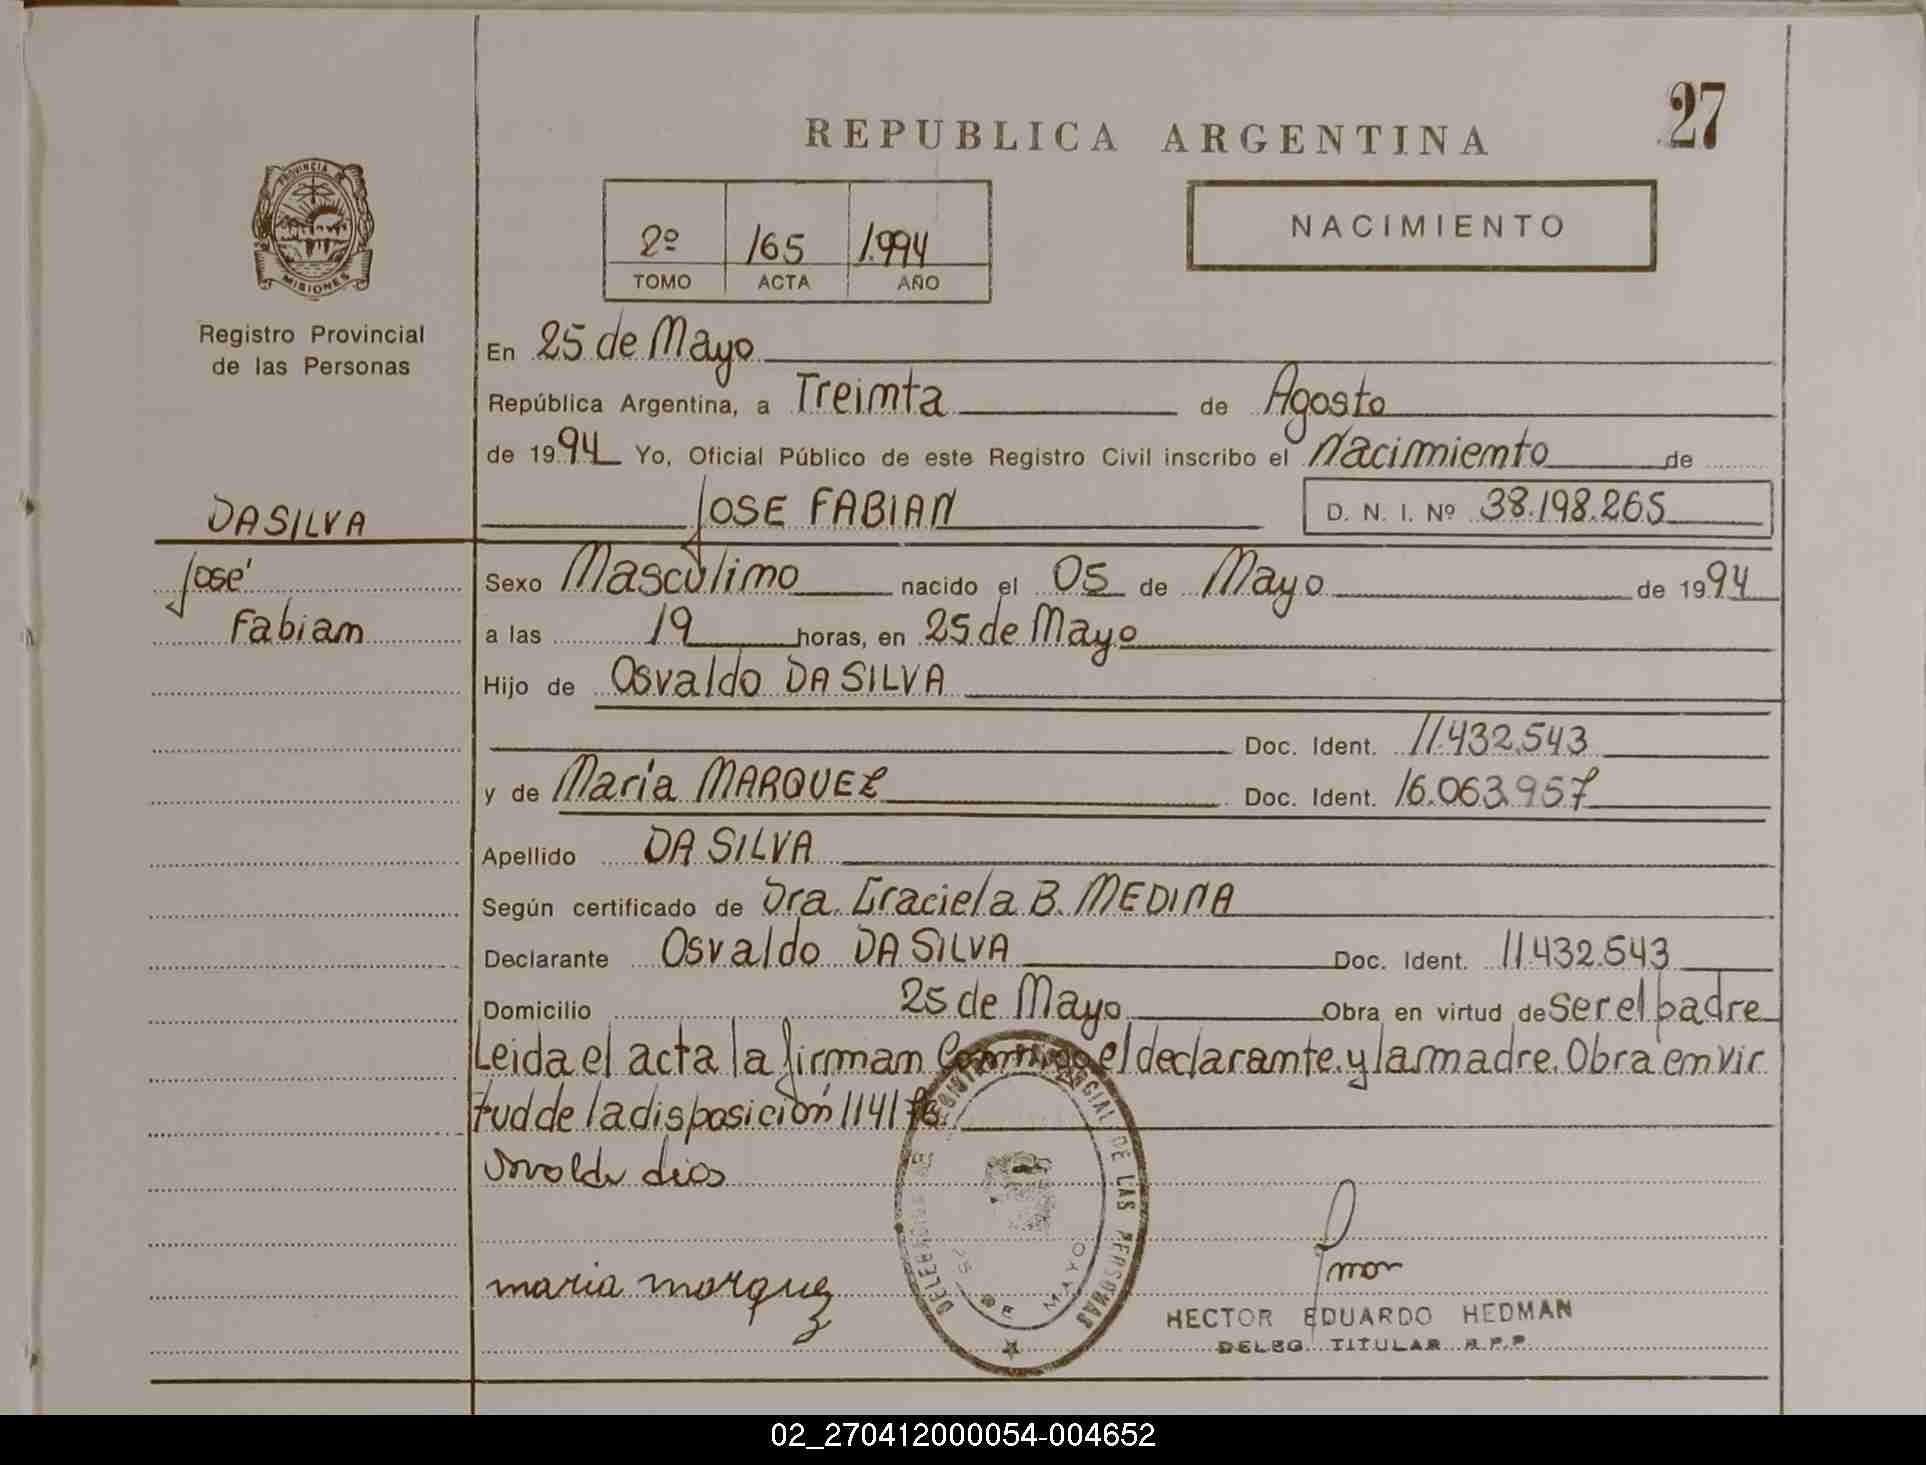 27
REPUBLICA ARGENTINA
PROVINCIA DE
MISIONES
Registro Provincial
de las Personas
2º 165 1.994
TOMO ACTA AÑO
NACIMIENTO
En 25 de Mayo
República Argentina, a Treinta de Agosto
de 1994 Yo, Oficial Público de este Registro Civil inscribo el Nacimiento de
DA SILVA
José
Fabian
JOSE FABIAN D. N. I. Nº 38.198.265
Sexo Masculino nacido el 05 de Mayo de 1994
a las 19 horas, en 25 de Mayo
Hijo de Osvaldo DA SILVA
Doc. Ident. 11.432.543
y de Maria MARQUEZ Doc. Ident. 16.063.957
Apellido DA SILVA
Según certificado de Dra. Graciela B. MEDINA
Declarante Osvaldo DA SILVA Doc. Ident. 11.432.543
Domicilio 25 de Mayo Obra en virtud de ser el padre
Leida el acta la firman Conmigo el declarante y la madre. Obra en vir
tud de la disposición 1141
maria marquez
DELEGACION REGISTRO PROVINCIAL DE LAS PERSONAS
25 DE MAYO
HECTOR EDUARDO HEDMAN
DELEG. TITULAR R.P.P.
02_270412000054-004652